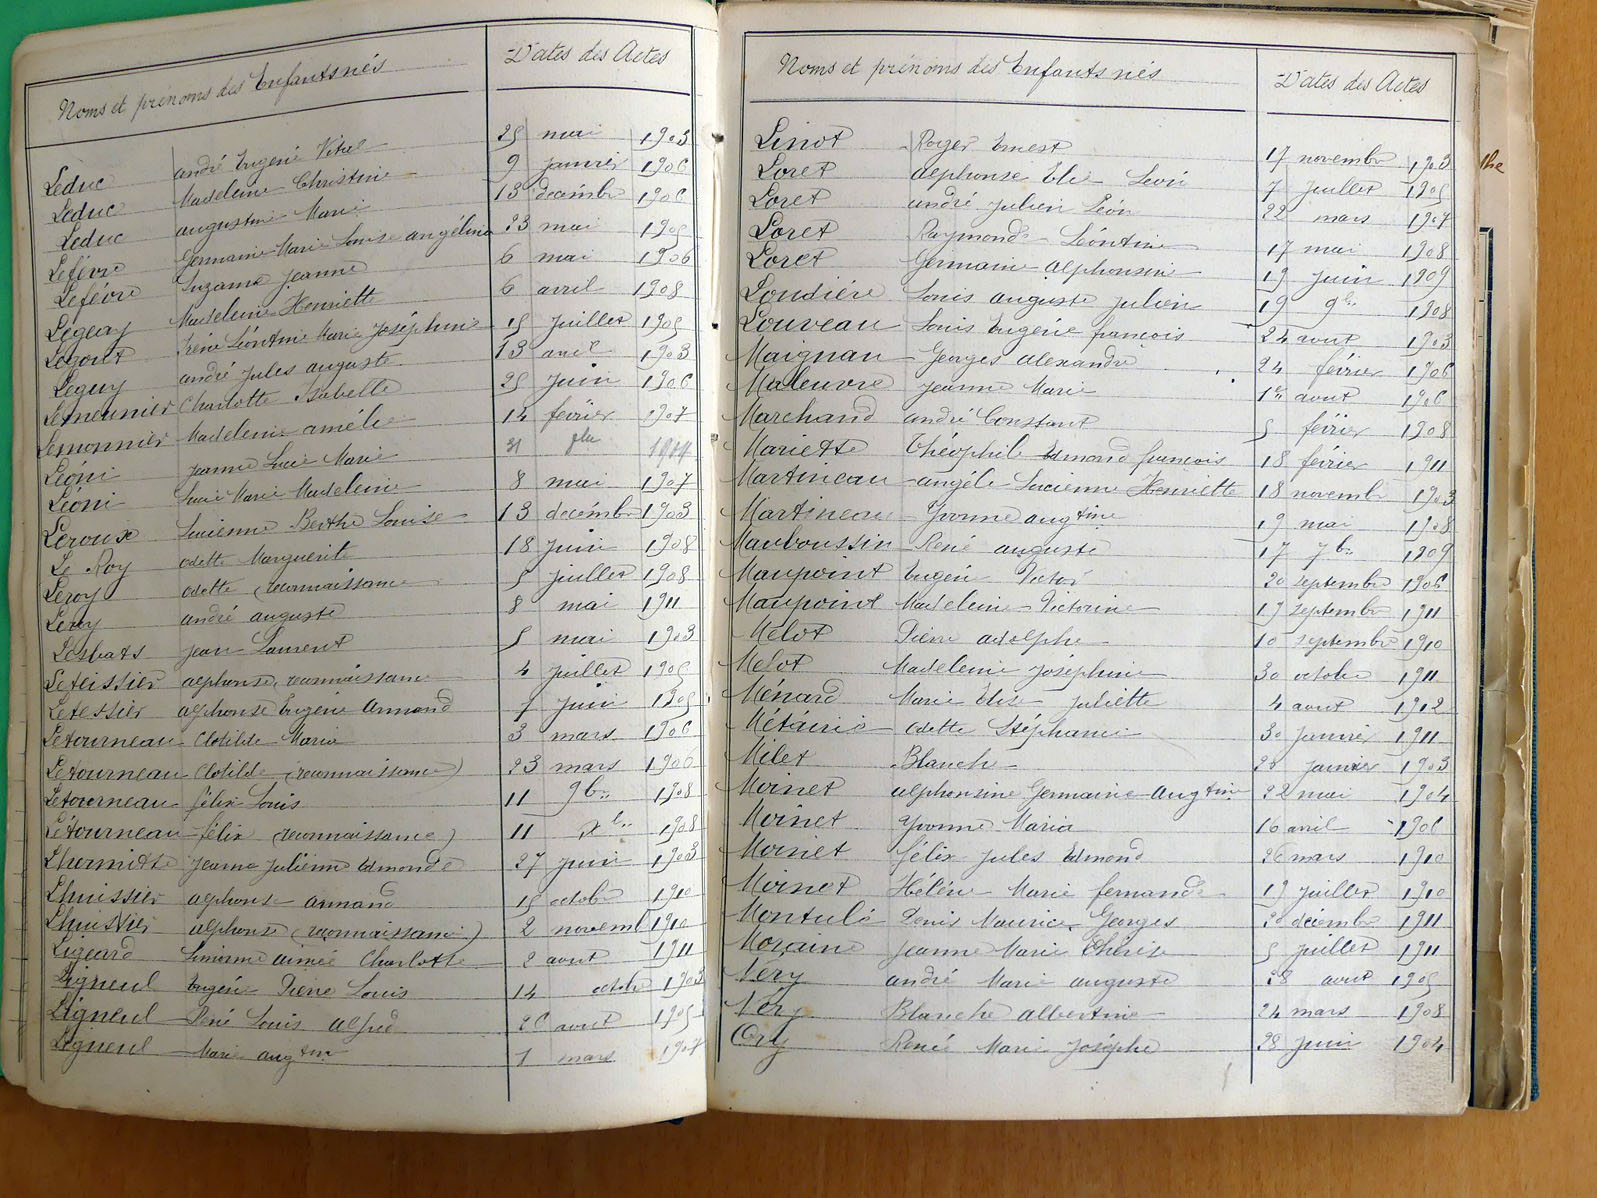 Noms et prénoms des Enfants nés Dates des Actes
Leduc andré Eugène Vital 25 mai 1903
Leduc Madeleine Christine 9 janvier 1906
Leduc augustine Marie 13 décembre 1906
Lefèvre Germaine Marie Louise angélina 23 mai 1905
Lefèvre Suzanne Jeanne 6 mai 1906
Legeay Madeleine Henriette 6 avril 1908
Legout Irène Léontine Marie Joséphine 15 Juillet 1905
Leguy andré Jules auguste 13 avril 1903
Lemeunier Charlotte Isabelle 25 Juin 1906
Lemonnier Madeleine amélie 14 février 1907
Léoni Jeanne Lucie Marie
Léoni Lucie Marie Madeleine 8 mai 1907
Leroux Lucienne Berthe Louise 13 decembre 1903
Le Roy odette Marguerite 18 Juin 1908
Leroy odette reconnaissance 5 juillet 1908
Leroy andré auguste 8 mai 1911
Lesbats Jean Laurent 5 mai 1903
Leteissier alphonse, reconnaissance 4 Juillet 1905
Letessier alphonse Eugène Armand 7 Juin 1905
Letourneau Clotilde Maria 3 mars 1906
Letourneau Clotilde (reconnaissance) 23 mars 1906
Letourneau félix Louis 11 9bre 1908
Letourneau félix (reconnaissance) 11 1908
Lhermitte Jeanne Julienne Edmonde 27 Juin 1903
Lhuissier alphonse armand 15 octobre 1910
Lhuissier alphonse (reconnaissance) 2 novemb 1910
Ligeard Simonne aimée Charlotte 2 aout 1911
Ligneul Eugène Pierre Louis 14 octobre 1903
Ligneul René Louis alfred 26 aout 1905
Ligneul Marie augtine 7 mars 1907
Noms et prénoms des Enfants nés Dates des Actes
Linot Roger Ernest 17 novembre 1903
Loret alphonse Elie Léon 7 Juillet 1905
Loret andré Julien Léon 22 mars 1907
Loret Raymonde Léontine 17 mai 1908
Loret Germaine alphonsine 19 Juin 1909
Londière Louis auguste Julien 19 9bre 1908
Louveau Louis Eugène françois 24 aout 1903
Maignan Georges alexandre 24 février 1906
Maleuvre Jeanne Marie 1er aout 1906
Marchand andré Constant 5 février 1908
Mariette Théophile Edmond françois 18 février 1911
Martineau angèle Lucienne Henriette 18 novembre 1903
Martineau Yvonne augtine 19 mai 1908
Mauboussin René auguste 17 7bre 1909
Maupoint Eugène Victor 20 septembre 1906
Maupoint Madeleine Victorine 19 septembre 1911
Mélot Pierre adolphe 10 septembre 1910
Mélot Madeleine Joséphine 30 octobre 1911
Ménard Marie Elise Juliette 4 aout 1902
Métairie odette Stéphanie 30 Janvier 1911
Milet Blanche 28 Janvier 1903
Moinet alphonsine Germaine Augtine 22 mai 1904
Moinet Yvonne Maria 16 avril 1906
Moinet félix Jules Edmond 26 mars 1910
Moinet Hélène Marie fernande 19 Juillet 1910
Montulé Denis Maurice Georges 20 décembre 1911
Moraine Jeanne Marie Thérèse 5 Juillet 1911
Néry andré Marie auguste 28 aout 1905
Néry Blanche albertine 24 mars 1908
Ory Renée Marie Josèphe 28 Juin 1904
the